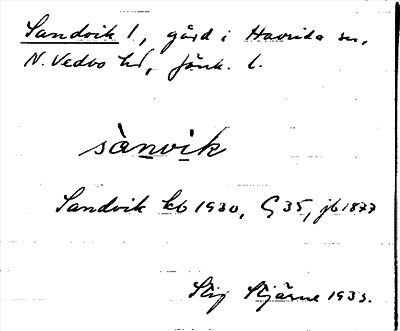 Sandvik 1, gård i Haurida sn,
N. Vedbo hd, Jönk. l.
sànvik
Sandvik kb 1930, G 35, jb 1877
Stig Stjärne 1935.